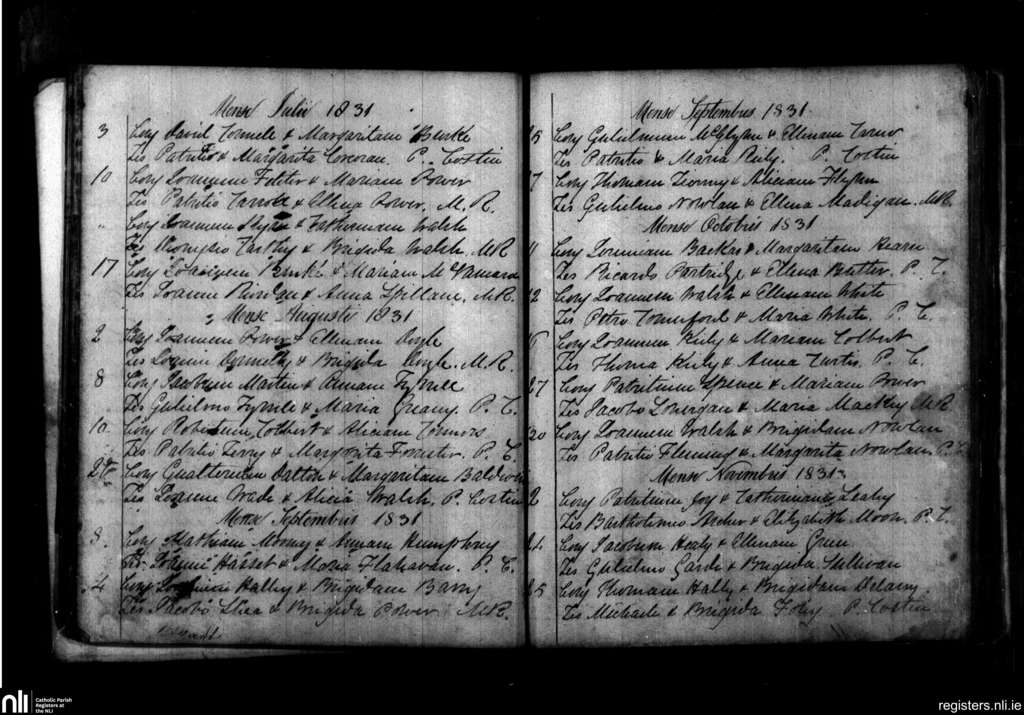 Mense Julii 1831
3 Conj David Connell & Margaritam Burke
Tes Patritio & Margarita Corcoran. P. Costin
10 Conj Joannem Folter & Mariam Power
Tes Patritio Carroll & Ellena Power. M. R.
" Conj Joannem & Catherinam Walsh
Tes Dionysio Carthy & Brigida Walsh. MR
17 Conj Joannem Burke & Mariam McNamara
Tes Joanne Riordan & Anna Spillane. MR.
Mense Augusti 1831
2 Conj Joannem Power & Ellenam Doyle
Tes Donnelly & Brigida Doyle. M. R.
8 Conj Jacobum Martin & Annam Tyrrell
Tes Gulielmo Tyrrell & Maria Creamy. P. C.
10 Conj Robertum Colbert & Aliciam Connors
Tes Patritio Terry & Margarita Forrester. P. C.
24 Conj Gualterum Dalton & Margaritam Baldwin
Tes Joanne Wade & Alicia Walsh. P. Costin
Mense Septembris 1831
3. Conj Mathiam Mooney & Annam Humphrey
Tes. Joanne Hasset & Maria Flahavan. P. C.
4 Conj Hally & Brigidam Barry
Tes Jacobo Shea & Brigida Power MR.
Mense Septembris 1831
15 Conj Gulielmum McGlynn & Ellenam
Tes Patritio & Maria Riely. P. Costin
17 Conj Thomam & Aliciam Flynn
Tes Gulielmo Nowlan & Ellena Madigan. MR.
Mense Octobris 1831
11 Conj Backas & Margaritam Kearn
Tes Ricardo Partridge & Ellena Butler. P. C.
12 Conj Joannem Walsh & Ellenam White
Tes Petro Comerford & Maria White. P. C.
16 Conj Joannem Kiely & Mariam Colbert
Tes Thoma Kiely & Anna Curtis. P. C.
27 Conj Patritium Spence & Mariam Power
Tes Jacobo Lonergan & Maria Mackey MR
30 Conj Joannem Walsh & Brigidam Nowlan
Tes Patritio Fleming & Margarita Nowlan. P. C.
Mense Novembris 1831
2 Conj Patritium Joy & Catherinam Leahy
Tes Bartholomeo Archer & Elizabeth Moore. P. C.
24 Conj Jacobum Healy & Ellenam Green
Tes Gulielmo Garde & Brigida Sullivan
25 Conj Thomam Hally & Brigidam Delany.
Tes Michaele & Brigida Foley P. Costin
nli Catholic Parish
Registers at
the NLI
registers.nli.ie